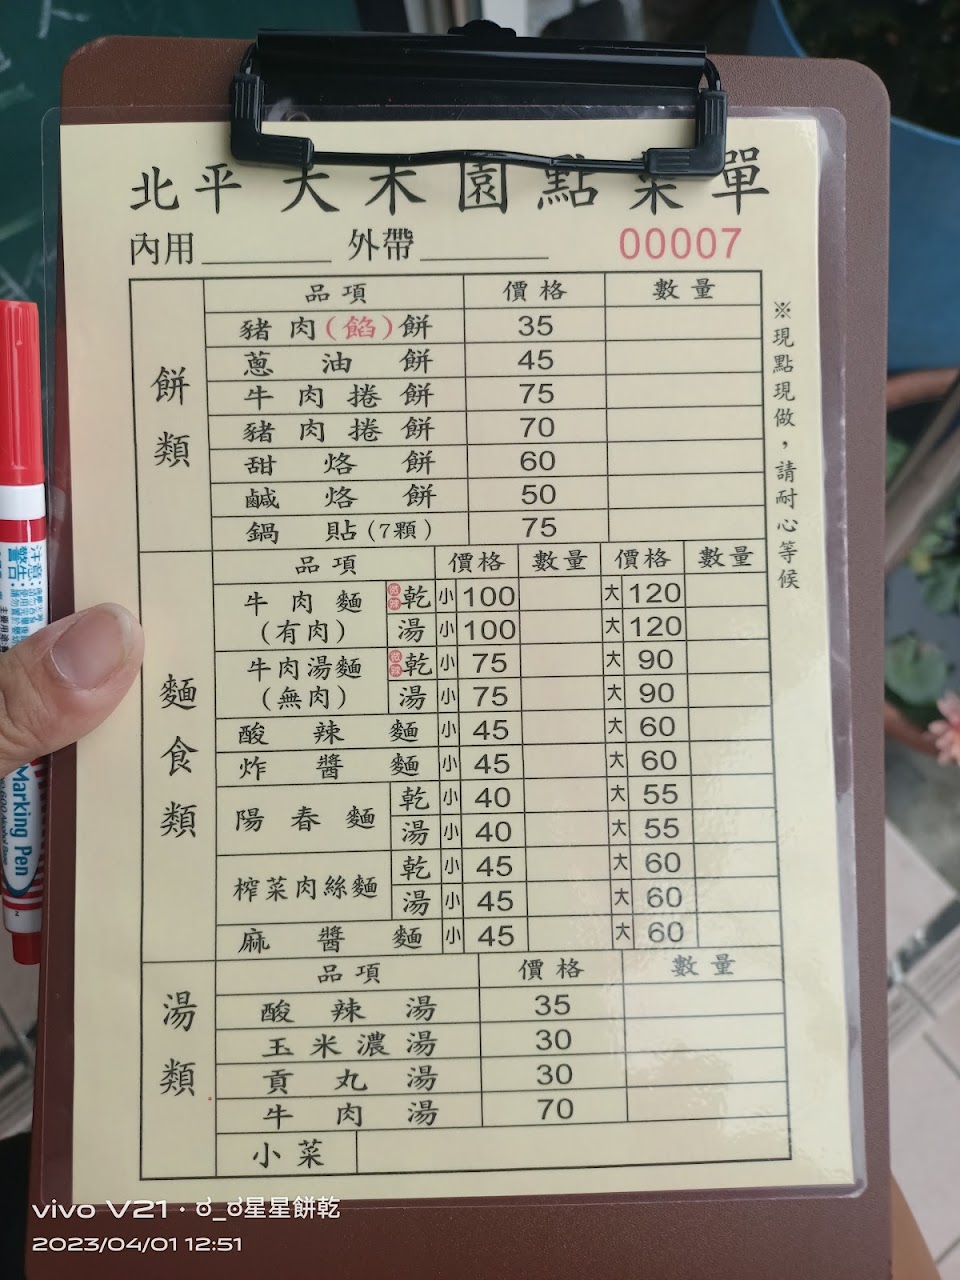 北平大禾園點菜單
內用 外帶 00007
※現點現做，請耐心等候
餅類
品項 價格 數量
豬肉(餡)餅 35
蔥油餅 45
牛肉捲餅 75
豬肉捲餅 70
甜烙餅 60
鹹烙餅 50
鍋貼(7顆) 75
麵食類
品項 價格 數量 價格 數量
牛肉麵(有肉) 乾 小 100 大 120
湯 小 100 大 120
牛肉湯麵(無肉) 乾 小 75 大 90
湯 小 75 大 90
酸辣麵 小 45 大 60
炸醬麵 小 45 大 60
陽春麵 乾 小 40 大 55
湯 小 40 大 55
榨菜肉絲麵 乾 小 45 大 60
湯 小 45 大 60
麻醬麵 小 45 大 60
湯類
品項 價格 數量
酸辣湯 35
玉米濃湯 30
貢丸湯 30
牛肉湯 70
小菜
注意:
警告:
Marking Pen
vivo V21 · ಠ_ಠ星星餅乾
2023/04/01 12:51